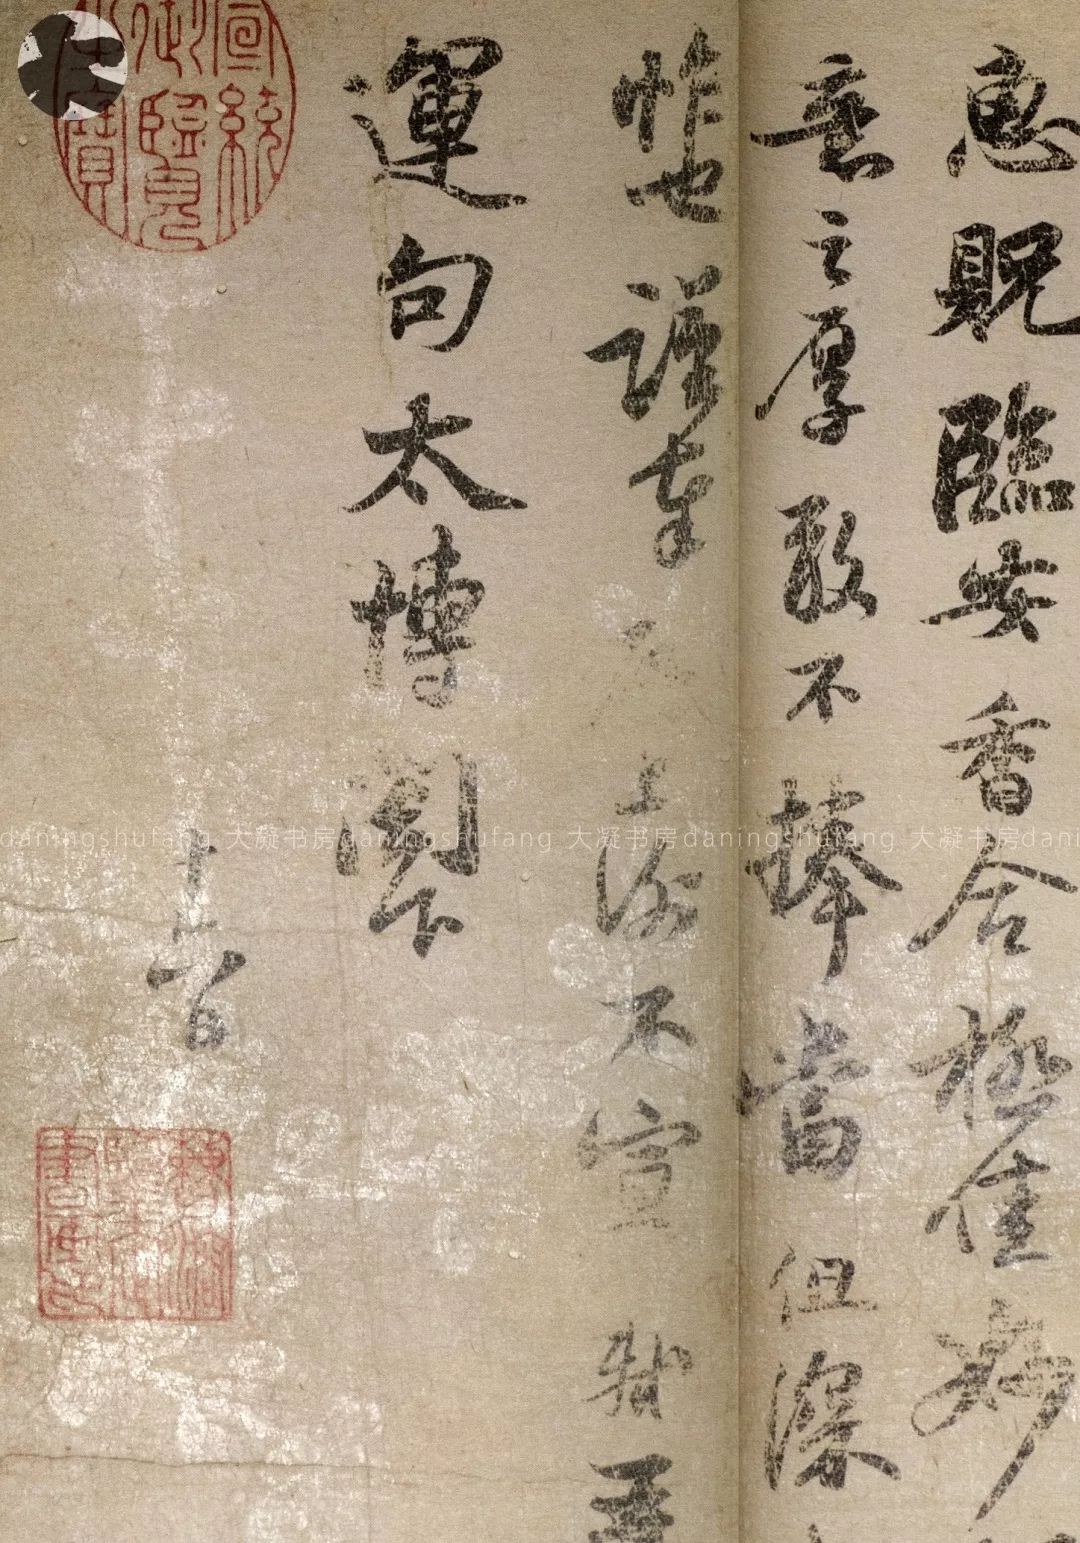 惠貺臨安香合極佳妙
意之厚敢不捧當但深
怍也謹奉
上謝不宣 軾再
運句太博閣下
十五日
宣統御覽之寶
daningshufang 大凝书房daningshufang 大凝书房daningshufang 大凝书房danin